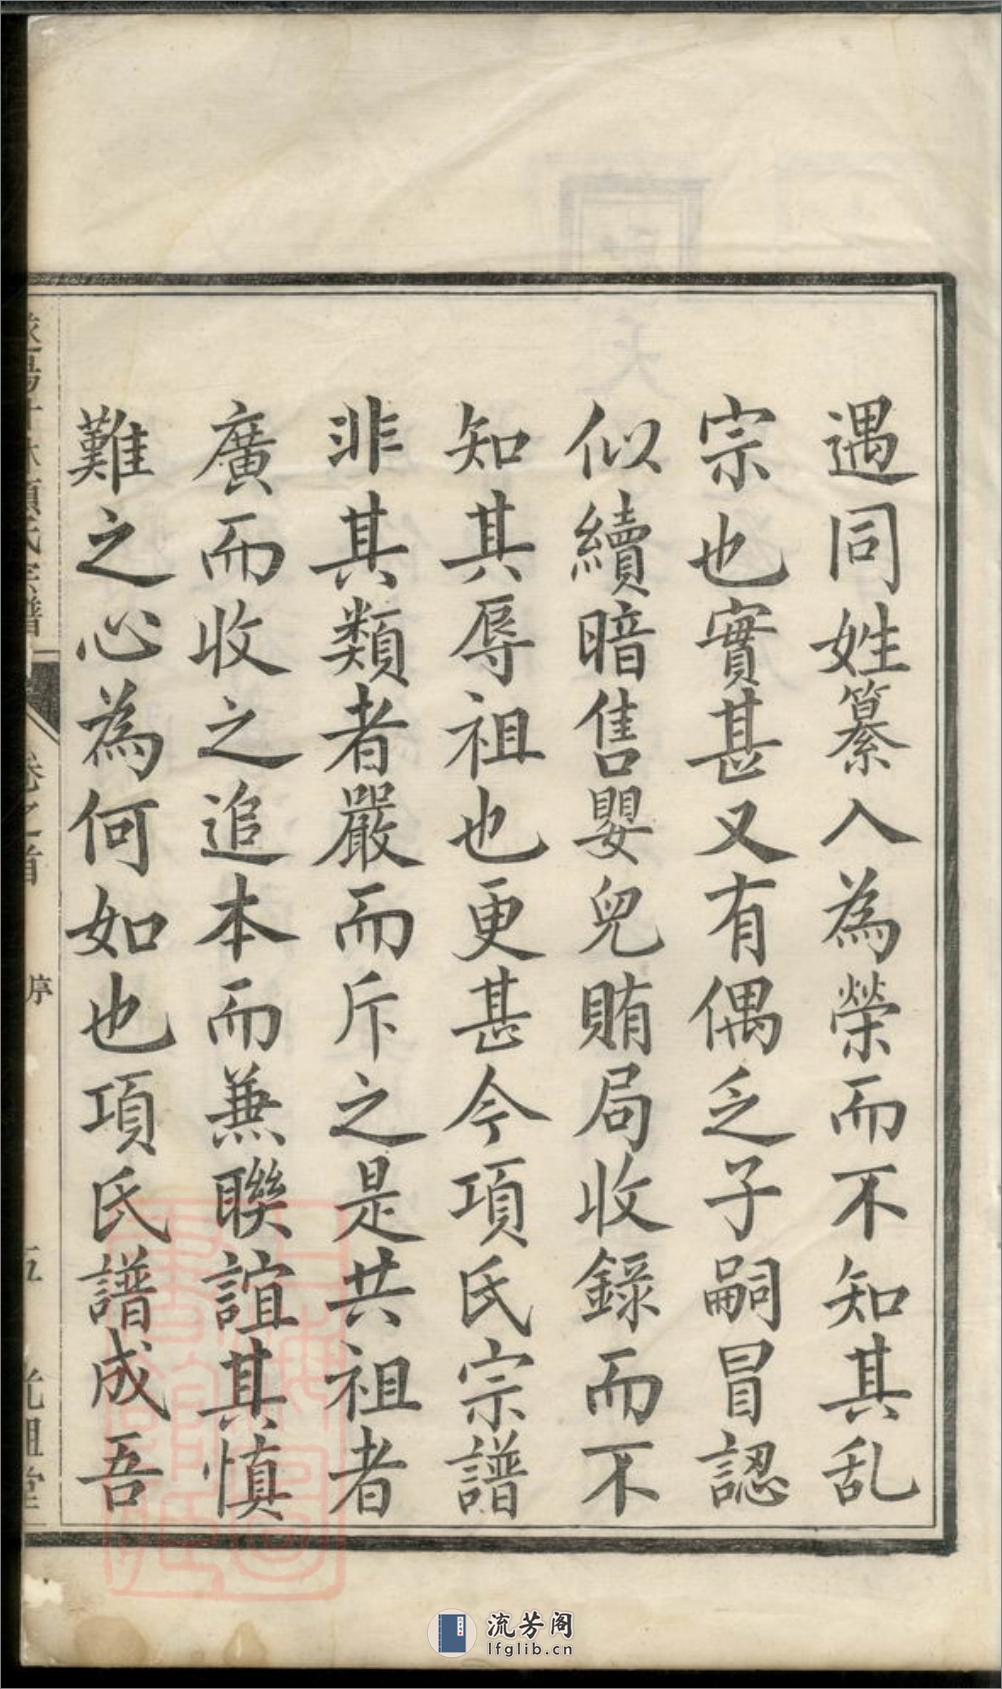 遇同姓纂入為榮而不知其乱
宗也實甚又有偶乏子嗣冒認
似續暗售嬰兒賄局收錄而不
知其辱祖也更甚今項氏宗譜
非其類者嚴而斥之是共祖者
廣而收之追本而兼聯誼其慎
難之心為何如也項氏譜成吾
項氏宗譜
卷之首
序
五
光祖堂
流芳阁
lfglib.cn